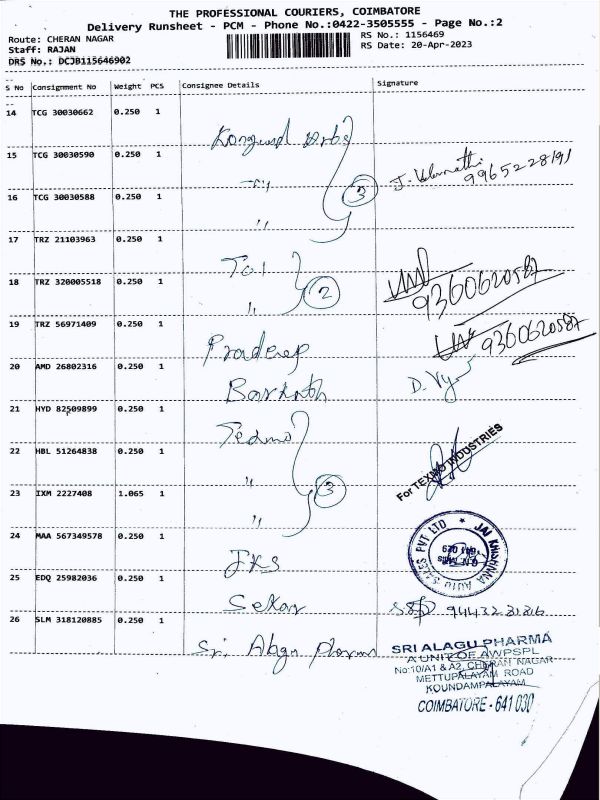 THE PROFESSIONAL COURIERS, COIMBATORE
Delivery Runsheet - PCM - Phone No.:0422-3505555 - Page No.:2
Route: CHERAN NAGAR
RS No.: 1156469
Staff: RAJAN
RS Date: 20-Apr-2023
DRS No.: DCJB115646902
S No Consignment No Weight PCS Consignee Details Signature
14 TCG 30030662 0.250 1
15 TCG 30030590 0.250 1
3
9965228191
16 TCG 30030588 0.250 1
17 TRZ 21103963 0.250 1
18 TRZ 320005518 0.250 1
2
9360620587
19 TRZ 56971409 0.250 1
Pradeep
9360620587
20 AMD 26802316 0.250 1
21 HYD 82509899 0.250 1
22 HBL 51264838 0.250 1
For TEXMO INDUSTRIES
23 IXM 2227408 1.065 1
3
24 MAA 567349578 0.250 1
JKS
JAI KRISHNA AUTO SALES PVT LTD
25 EDQ 25982036 0.250 1
Sekar
26 SLM 318120885 0.250 1
Sri Alagu Pharma
SRI ALAGU PHARMA
A UNIT OF AWPSPL
No:10/A1 & A2, CHERAN NAGAR
METTUPALAYAM ROAD
KOUNDAMPALAYAM
COIMBATORE - 641 030